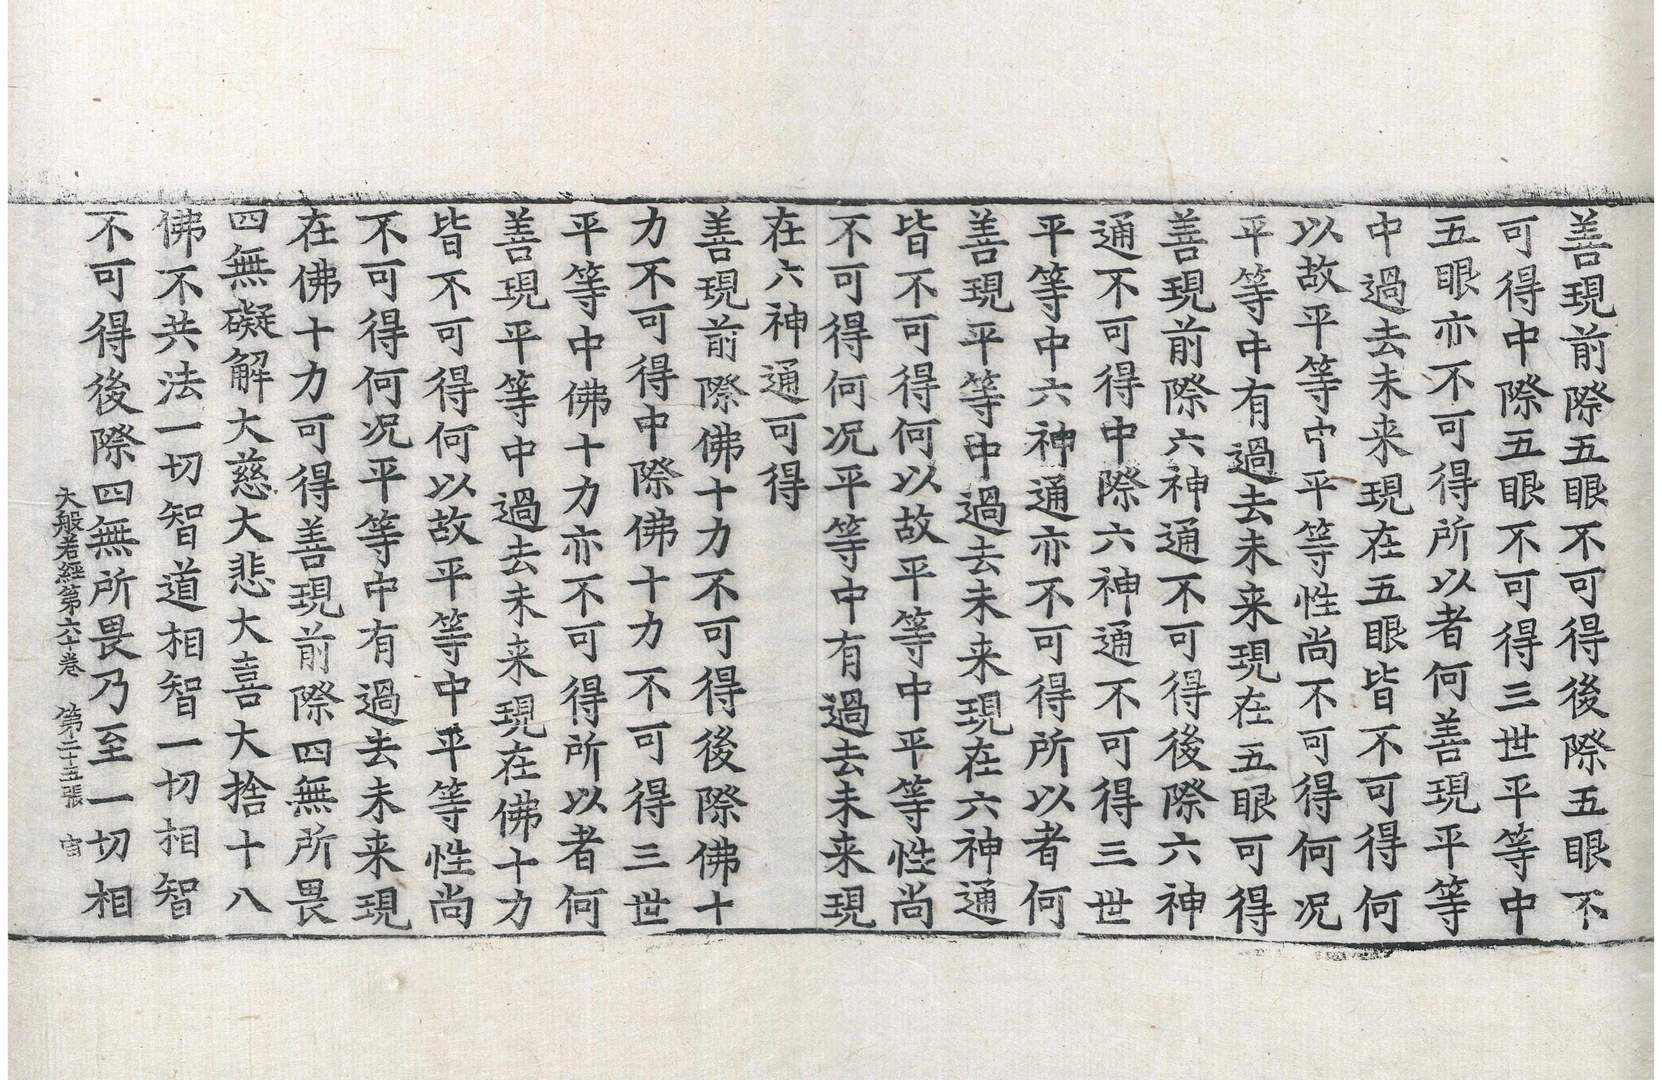 善現前際五眼不可得後際五眼不
可得中際五眼不可得三世平等中
五眼亦不可得所以者何善現平等
中過去未来現在五眼皆不可得何
以故平等中平等性尚不可得何况
平等中有過去未来現在五眼可得
善現前際六神通不可得後際六神
通不可得中際六神通不可得三世
平等中六神通亦不可得所以者何
善現平等中過去未来現在六神通
皆不可得何以故平等中平等性尚
不可得何况平等中有過去未来現
在六神通可得
善現前際佛十力不可得後際佛十
力不可得中際佛十力不可得三世
平等中佛十力亦不可得所以者何
善現平等中過去未来現在佛十力
皆不可得何以故平等中平等性尚
不可得何况平等中有過去未来現
在佛十力可得善現前際四無所畏
四無礙解大慈大悲大喜大捨十八
佛不共法一切智道相智一切相智
不可得後際四無所畏乃至一切相
大般若經第六十卷 第二十五張